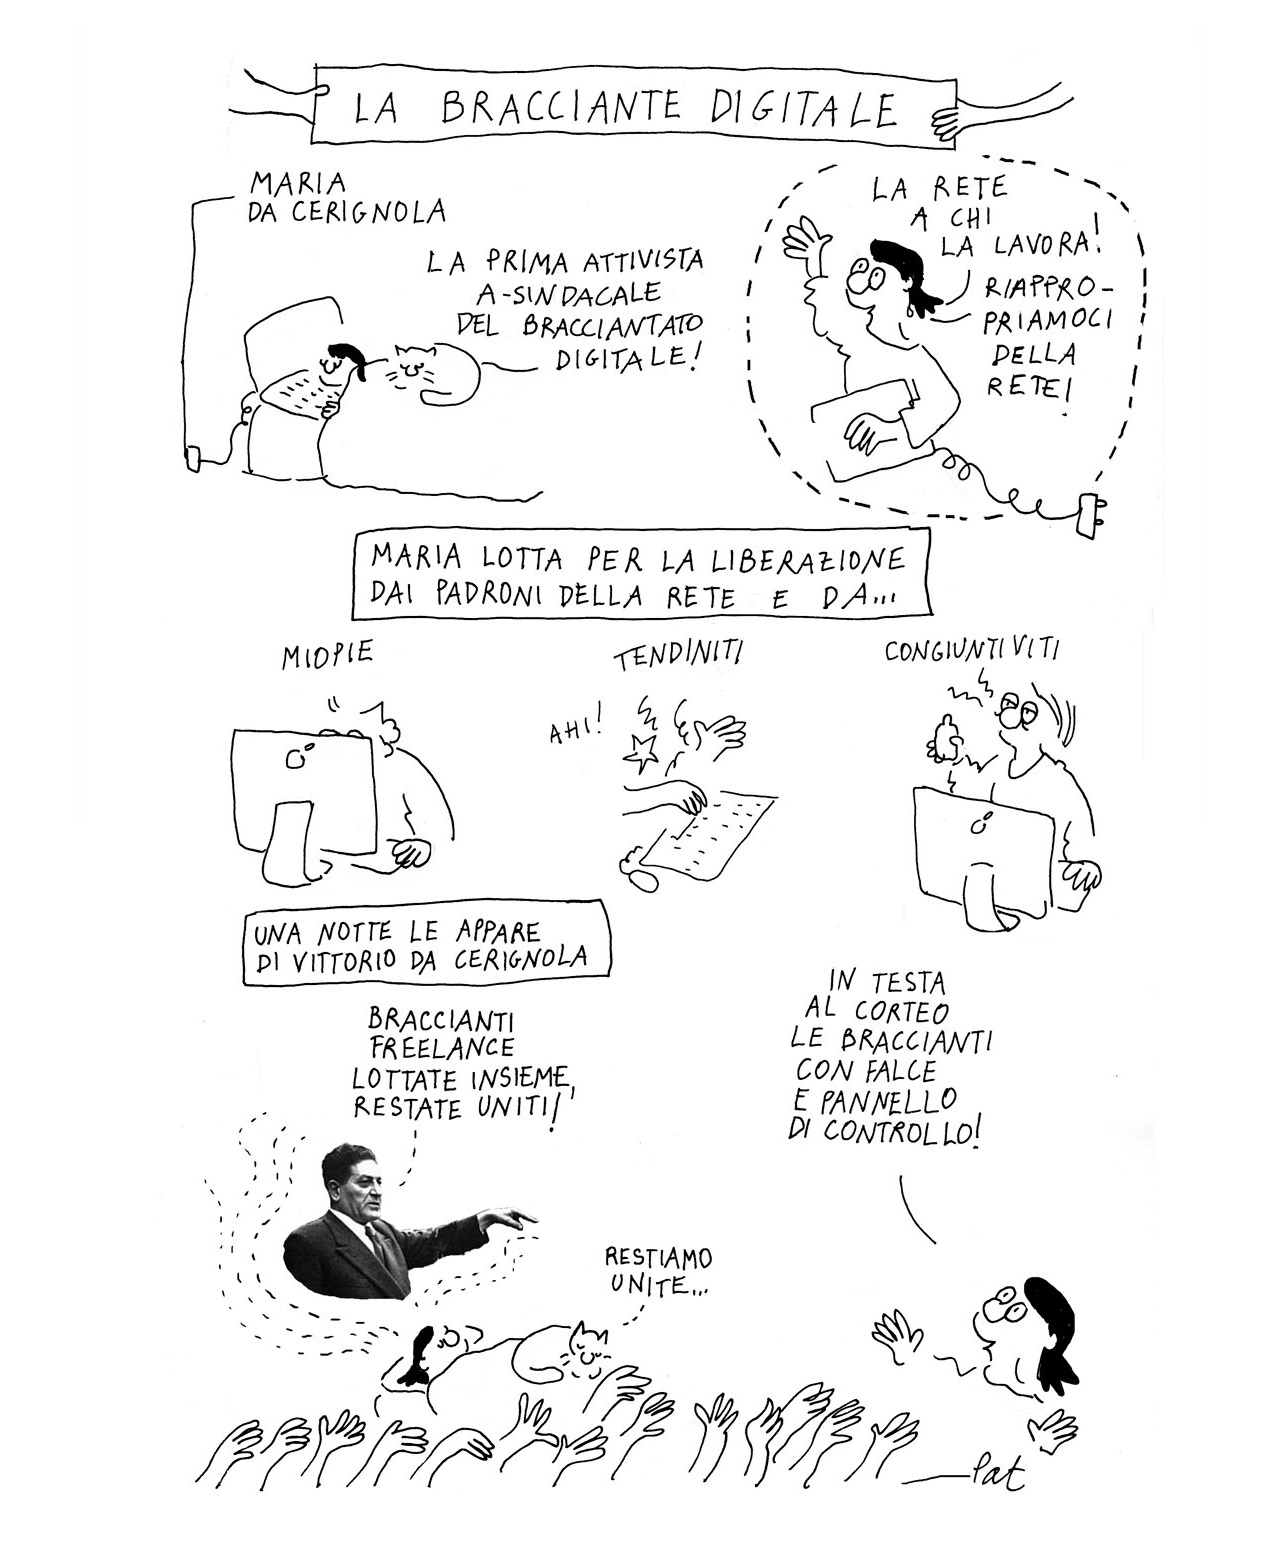 LA BRACCIANTE DIGITALE
MARIA
DA CERIGNOLA
LA PRIMA ATTIVISTA
A-SINDACALE
DEL BRACCIANTATO
DIGITALE!
LA RETE
A CHI
LA LAVORA!
RIAPPRO-
PRIAMOCI
DELLA
RETE!
MARIA LOTTA PER LA LIBERAZIONE
DAI PADRONI DELLA RETE E DA...
MIOPIE
TENDINITI
AHI!
CONGIUNTIVITI
UNA NOTTE LE APPARE
DI VITTORIO DA CERIGNOLA
BRACCIANTI
FREELANCE
LOTTATE INSIEME,
RESTATE UNITI!
RESTIAMO
UNITE...
IN TESTA
AL CORTEO
LE BRACCIANTI
CON FALCE
E PANNELLO
DI CONTROLLO!
Pat